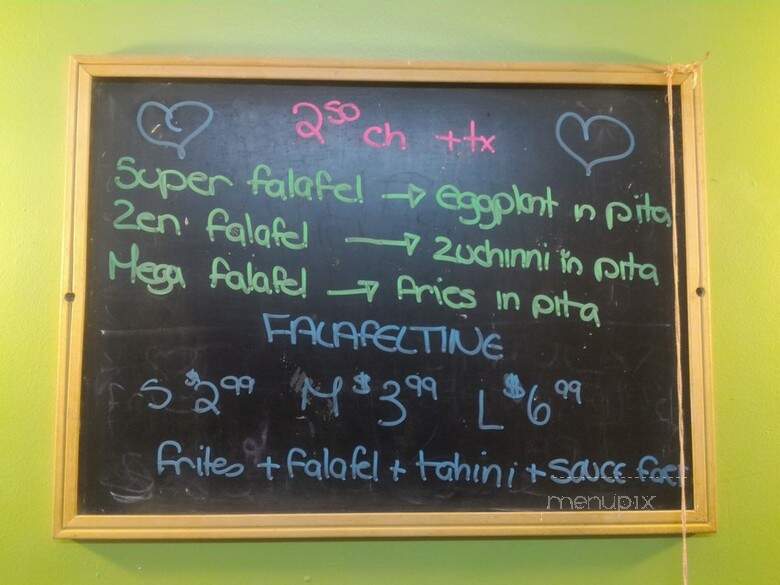 2⁵⁰ ch + tx
Super falafel → eggplant in pita
Zen falafel → Zuchinni in pita
Mega falafel → fries in pita
FALAFELTINE
S $2⁹⁹ M $3⁹⁹ L $6⁹⁹
frites + falafel + tahini + sauce
menupix